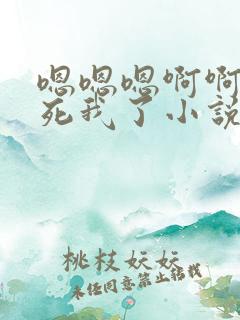 嗯嗯嗯啊啊
死我了小说
桃枝妧妧
未经同意禁止转载